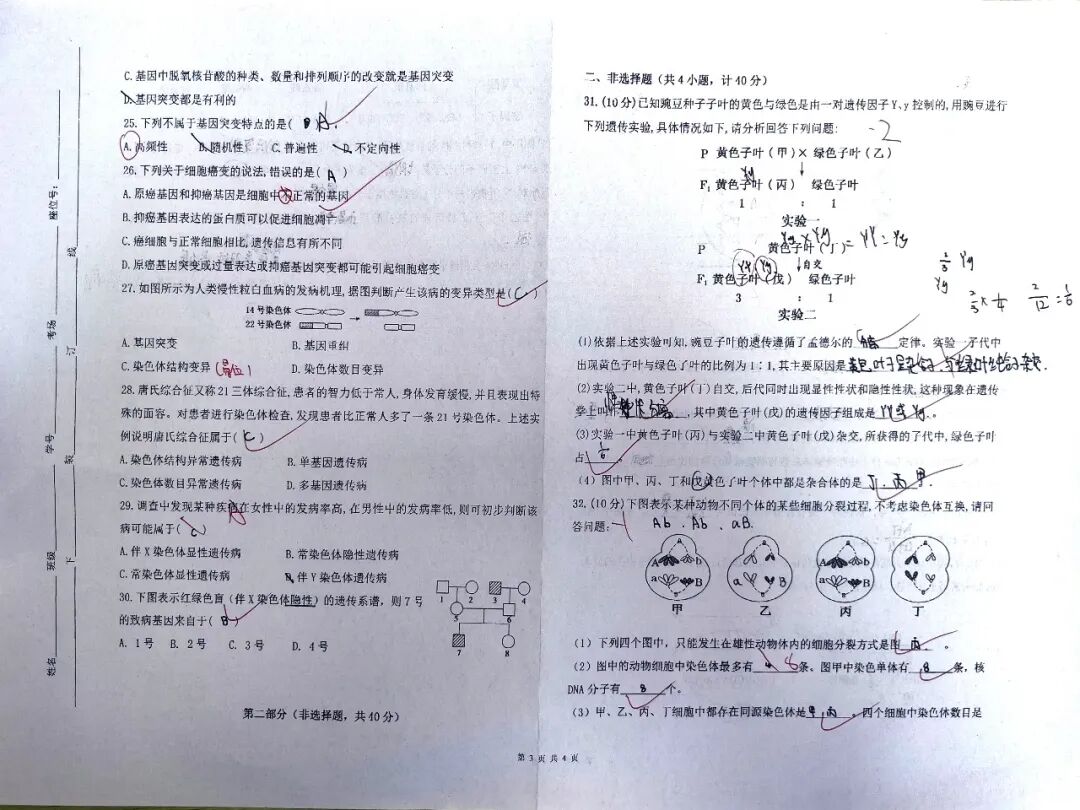 C.基因中脱氧核苷酸的种类、数量和排列顺序的改变就是基因突变
D.基因突变都是有利的
25.下列不属于基因突变特点的是( A )
A.高频性 B.随机性 C.普遍性 D.不定向性
26.下列关于细胞癌变的说法,错误的是( A )
A.原癌基因和抑癌基因是细胞中不正常的基因
B.抑癌基因表达的蛋白质可以促进细胞凋亡
C.癌细胞与正常细胞相比,遗传信息有所不同
D.原癌基因突变或过量表达或抑癌基因突变都可能引起细胞癌变
27.如图所示为人类慢性粒白血病的发病机理,据图判断产生该病的变异类型是( C )
14号染色体
22号染色体
A.基因突变 B.基因重组
C.染色体结构变异(易位) D.染色体数目变异
28.唐氏综合征又称21三体综合征,患者的智力低于常人,身体发育缓慢,并且表现出特
殊的面容。对患者进行染色体检查,发现患者比正常人多了一条21号染色体。上述实
例说明唐氏综合征属于( C )
A.染色体结构异常遗传病 B.单基因遗传病
C.染色体数目异常遗传病 D.多基因遗传病
29.调查中发现某种疾病在女性中的发病率高,在男性中的发病率低,则可初步判断该
A
病可能属于( )
A.伴X染色体显性遗传病 B.常染色体隐性遗传病
C.常染色体显性遗传病 D.伴Y染色体遗传病
30.下图表示红绿色盲(伴X染色体隐性)的遗传系谱,则7号
的致病基因来自于( B )
A.1号 B.2号 C.3号 D.4号
1 2 3 4
5 6
7 8
第二部分(非选择题,共40分)
座位号:
考场
学号
班级
姓名
线
订
装
下
二、非选择题(共4小题,计40分)
31.(10分)已知豌豆种子子叶的黄色与绿色是由一对遗传因子Y、y控制的,用豌豆进行
下列遗传实验,具体情况如下,请分析回答下列问题:
-2
P 黄色子叶(甲)×绿色子叶(乙)
Yy
F₁ 黄色子叶(丙) 绿色子叶
1 : 1
实验一
Yy × Yy
P 黄色子叶(丁) = YY = Yy
YY Yy 自交
F₁ 黄色子叶(戊) 绿色子叶
3 : 1
实验二
1/3 Yy
Yy
2/3 × 1/4 2/12 = 1/6
(1)依据上述实验可知,豌豆子叶的遗传遵循了孟德尔的 分离 定律。实验一子代中
出现黄色子叶与绿色子叶的比例为1:1,其主要原因是
(2)实验二中,黄色子叶(丁)自交,后代同时出现显性性状和隐性性状,这种现象在遗传
学上叫作 性状分离 ,其中黄色子叶(戊)的遗传因子组成是 YY或Yy 。
(3)实验一中黄色子叶(丙)与实验二中黄色子叶(戊)杂交,所获得的子代中,绿色子叶
占 1/6 。
(4)图中甲、丙、丁和戊黄色子叶个体中都是杂合体的是 丁、丙 甲.
32.(10分)下图表示某种动物不同个体的某些细胞分裂过程,不考虑染色体互换,请问
答问题: -1 Ab . Ab . aB.
A b
a B
甲
a B
乙
A b
a B
丙
丁
(1)下列四个图中,只能发生在雄性动物体内的细胞分裂方式是图 丙 。
(2)图中的动物细胞中染色体最多有 4 8 条、图甲中染色单体有 8 条,核
DNA分子有 8 个。
(3)甲、乙、丙、丁细胞中都存在同源染色体是 甲,丙 ,四个细胞中染色体数目是
第 3 页 共 4 页